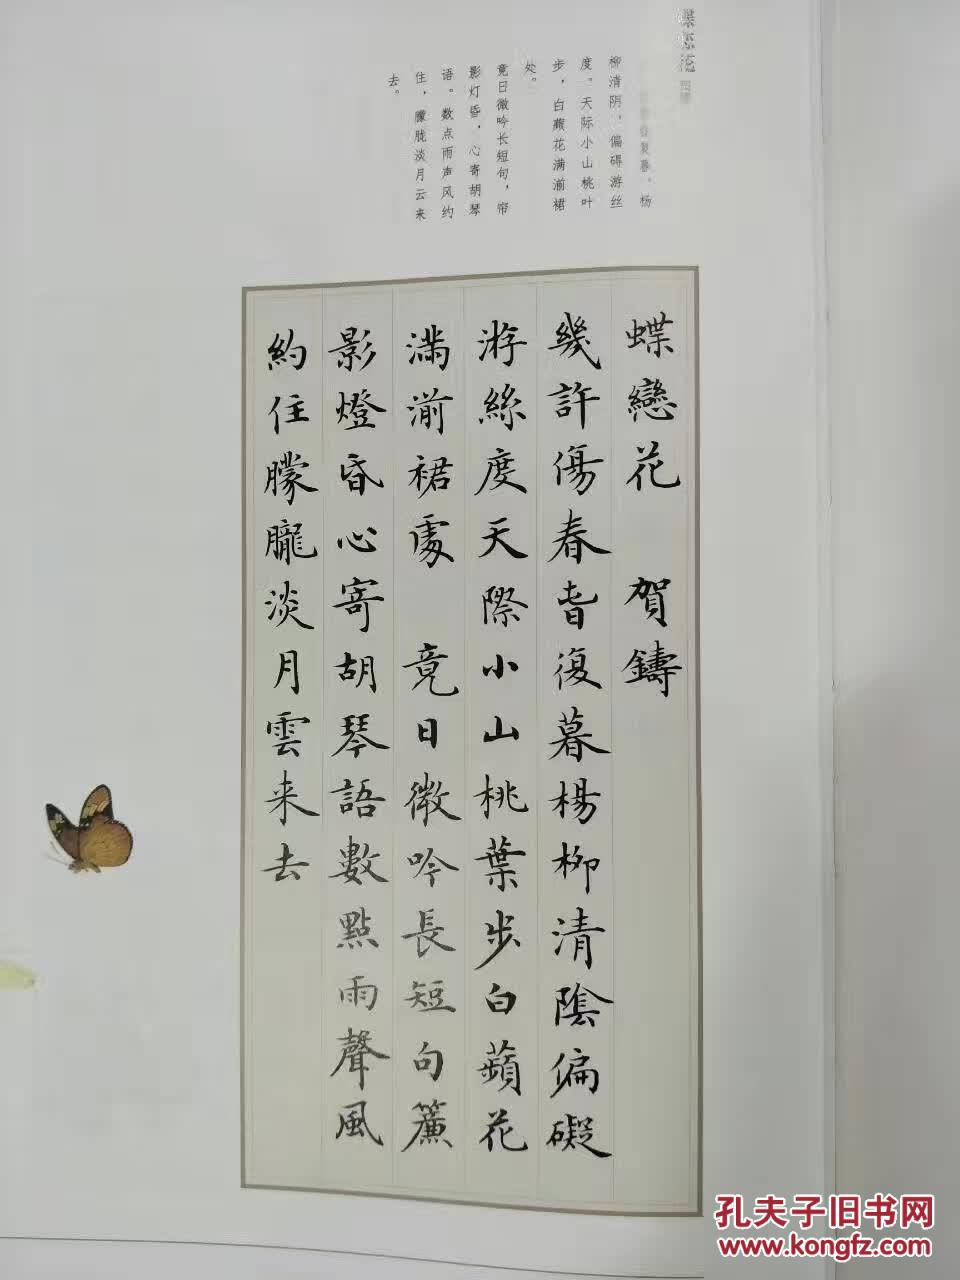 蝶恋花
春复暮。杨
柳清阴，偏碍游丝
度。天际小山桃叶
步，白蘋花满湔裙
处。
竟日微吟长短句，帘
影灯昏，心寄胡琴
语。数点雨声风约
住，朦胧淡月云来
去。
蝶戀花 賀鑄
幾許傷春春復暮楊柳清陰偏礙
游絲度天際小山桃葉步白蘋花
滿湔裙處 竟日微吟長短句簾
影燈昏心寄胡琴語數點雨聲風
約住朦朧淡月雲来去
孔夫子旧书网
www.kongfz.com